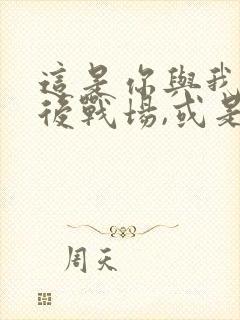 這是你與我
後戰場,或是
周天